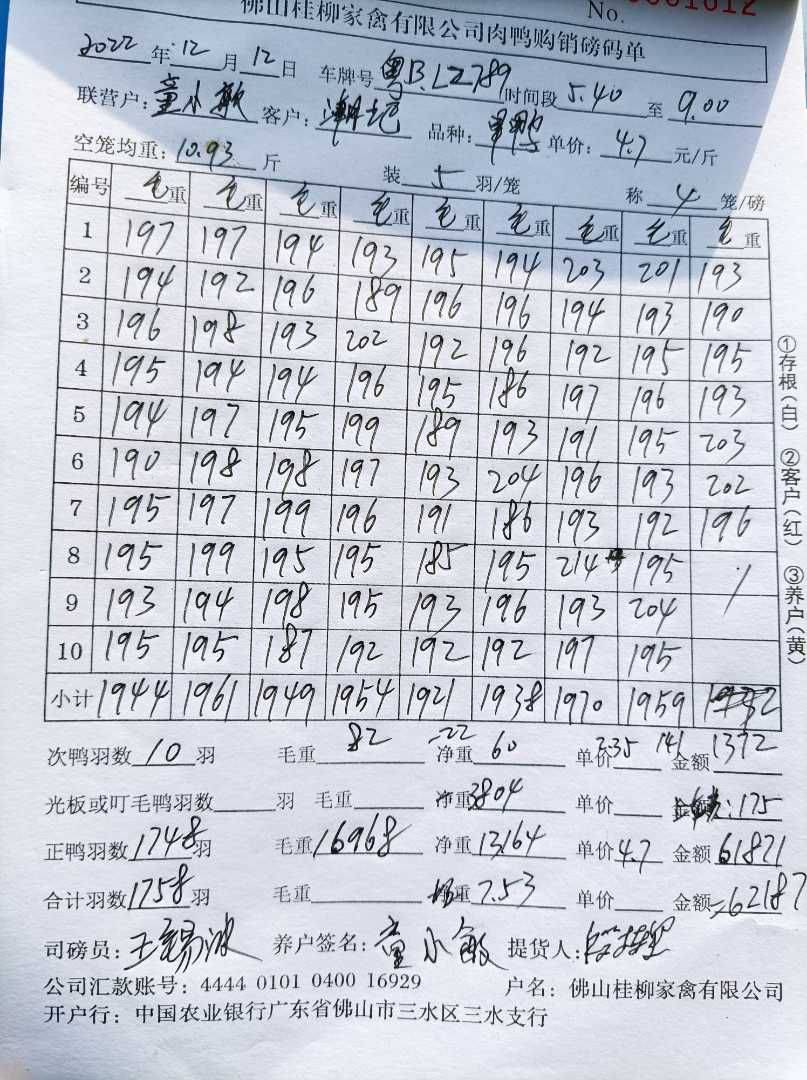 佛山桂柳家禽有限公司肉鸭购销磅码单 No.
2022年12月12日 车牌号粤B.LZ789 时间段5.40至9.00
联营户:童小敏 客户: 品种: 单价:4.7元/斤
空笼均重:10.93斤 装5羽/笼 称4笼/磅
编号 毛重 毛重 毛重 毛重 毛重 毛重 毛重 毛重 毛重
1 197 197 194 193 195 194 203 201 193
2 194 192 196 189 196 196 194 193 190
3 196 198 193 202 192 196 192 195 195
4 195 194 194 196 195 186 197 196 193
5 194 197 195 199 189 193 191 195 203
6 190 198 198 197 193 204 196 193 202
7 195 197 199 196 191 186 193 192 196
8 195 199 195 195 185 195 214 195 /
9 193 194 198 195 193 196 193 204
10 195 195 187 192 192 192 197 195
小计 1944 1961 1949 1954 1921 1938 1970 1959
次鸭羽数10羽 毛重82 -22 净重60 单价2.35 141 金额1372
光板或叮毛鸭羽数 羽 毛重 净重3804 单价 :175
正鸭羽数1748羽 毛重16968 净重13164 单价4.7 金额61871
合计羽数1758羽 毛重 7.53 单价 金额=62187
司磅员:王锡波 养户签名:童小敏 提货人:
公司汇款账号:4444 0101 0400 16929 户名:佛山桂柳家禽有限公司
开户行:中国农业银行广东省佛山市三水区三水支行
①存根(白) ②客户(红) ③养户(黄)